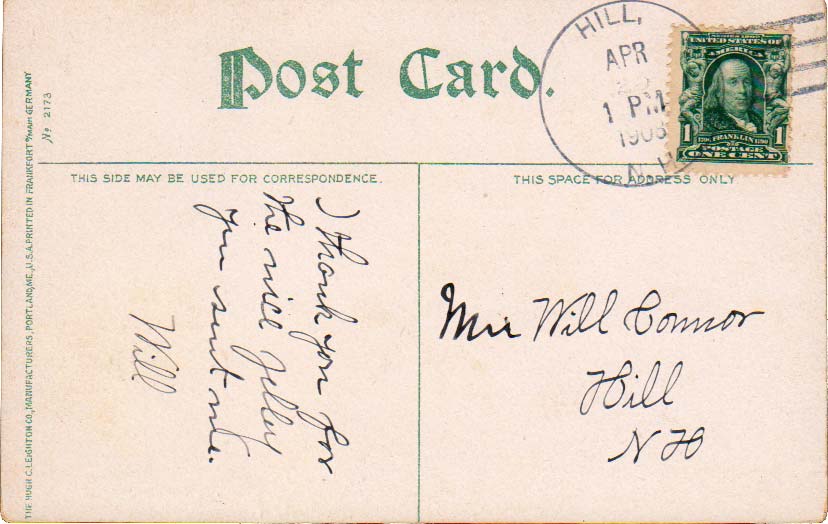 Post Card.
HILL,
APR
1 PM
1908
N.H.
SERIES 1902
UNITED STATES OF
AMERICA
1 1706 FRANKLIN 1790 1
POSTAGE
ONE CENT
THIS SIDE MAY BE USED FOR CORRESPONDENCE.
THIS SPACE FOR ADDRESS ONLY
I thank you for
the nice Jelley
you sent me.
Will
Will Connor
Hill
NH
No 2173
THE HUGH C. LEIGHTON CO., MANUFACTURERS, PORTLAND, ME., U.S.A. PRINTED IN FRANKFORT o/MAIN GERMANY